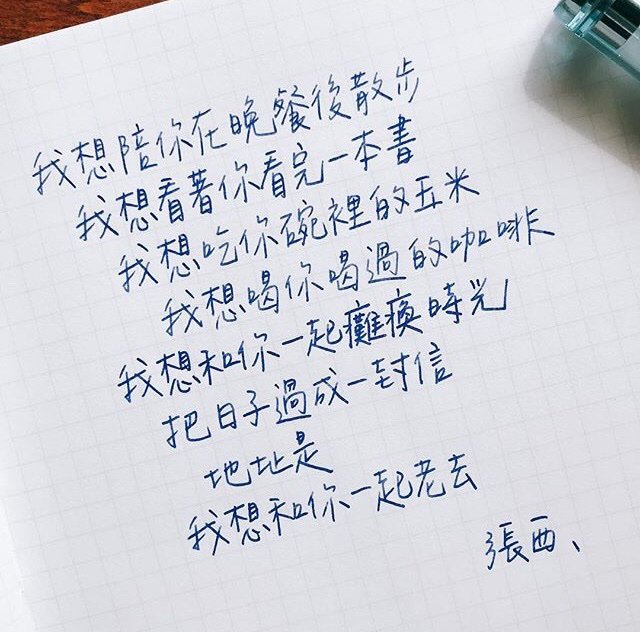 我想陪你在晚餐後散步
我想看著你看完一本書
我想吃你碗裡的玉米
我想喝你喝過的咖啡
我想和你一起癱瘓時光
把日子過成一封信
地址是
我想和你一起老去
張西、